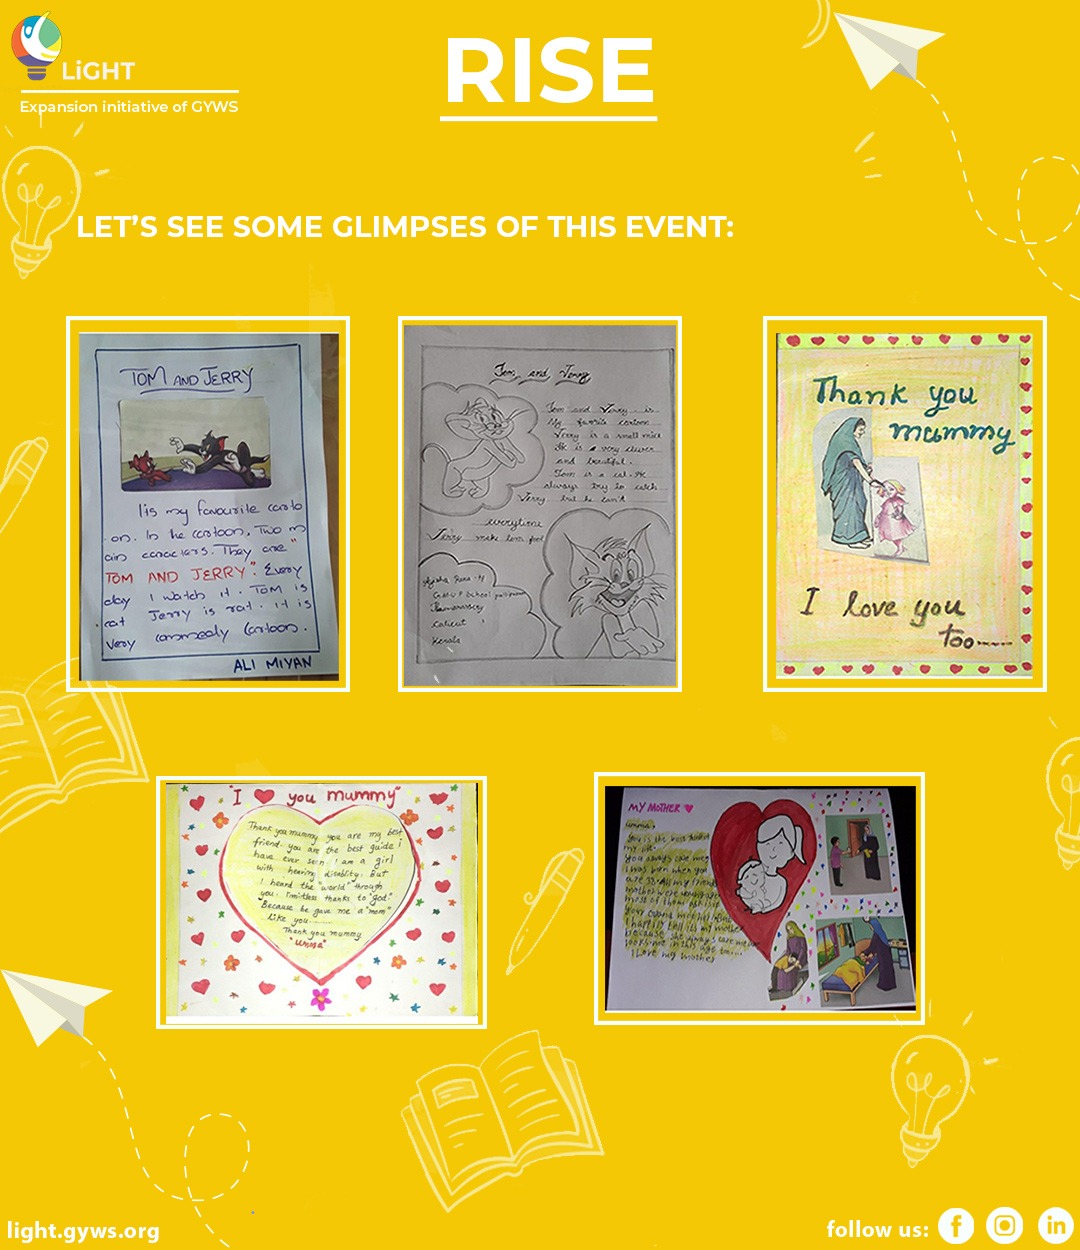 LiGHT
Expansion initiative of GYWS
RISE
LET'S SEE SOME GLIMPSES OF THIS EVENT:
TOM AND JERRY
is my favourite carto
on. In he cartoon, Two m
ain caraciers. They are "
TOM AND JERRY". Every
day I watch it. TOM is
cat Jerry is rat. it is
very commedy Cartoon.
ALI MIYAN
Tom and Jerry
Tom and Verry is
My favorite cartoon
Verry is a small mice
He is a very clever
and beautiful.
Tom is a cat. He
always try to catch
Verry but he can't
everytime
Jerry make tom fool
Ayisha Rana
School
Thamarassery
calicut
Kerala
Thank you
mummy
I love you
too
"I you mummy"
Thank you mummy you are my best
friend. you are the best guide i
have ever seen. I am a girl
with hearing disability. But
I heard the "world" through
you. limitless thanks to "god"
Because he gave me a "mom"
like you
Thank you mummy
"umma"
MY MOTHER
umma,
You is the best
my life.
You always care me
I was born when you
are 38. All my friends
mother were
most of them
mother
tell its my mother
because she always care me
looks not in this age too
I Love my mother
light.gyws.org
follow us: